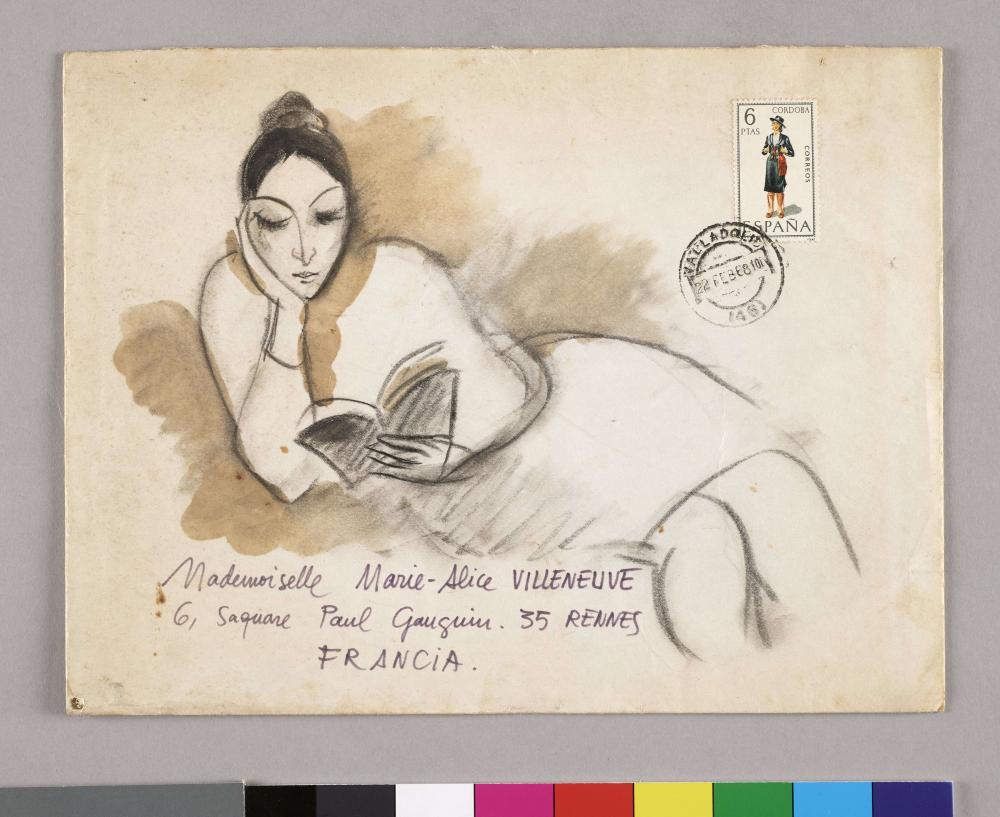 6 CORDOBA
PTAS
CORREOS
ESPAÑA
VALLADOLID
22 FEB 68 10
(46)
Mademoiselle Marie-Alice VILLENEUVE
6, Saquare Paul Gauguin. 35 RENNES
FRANCIA.